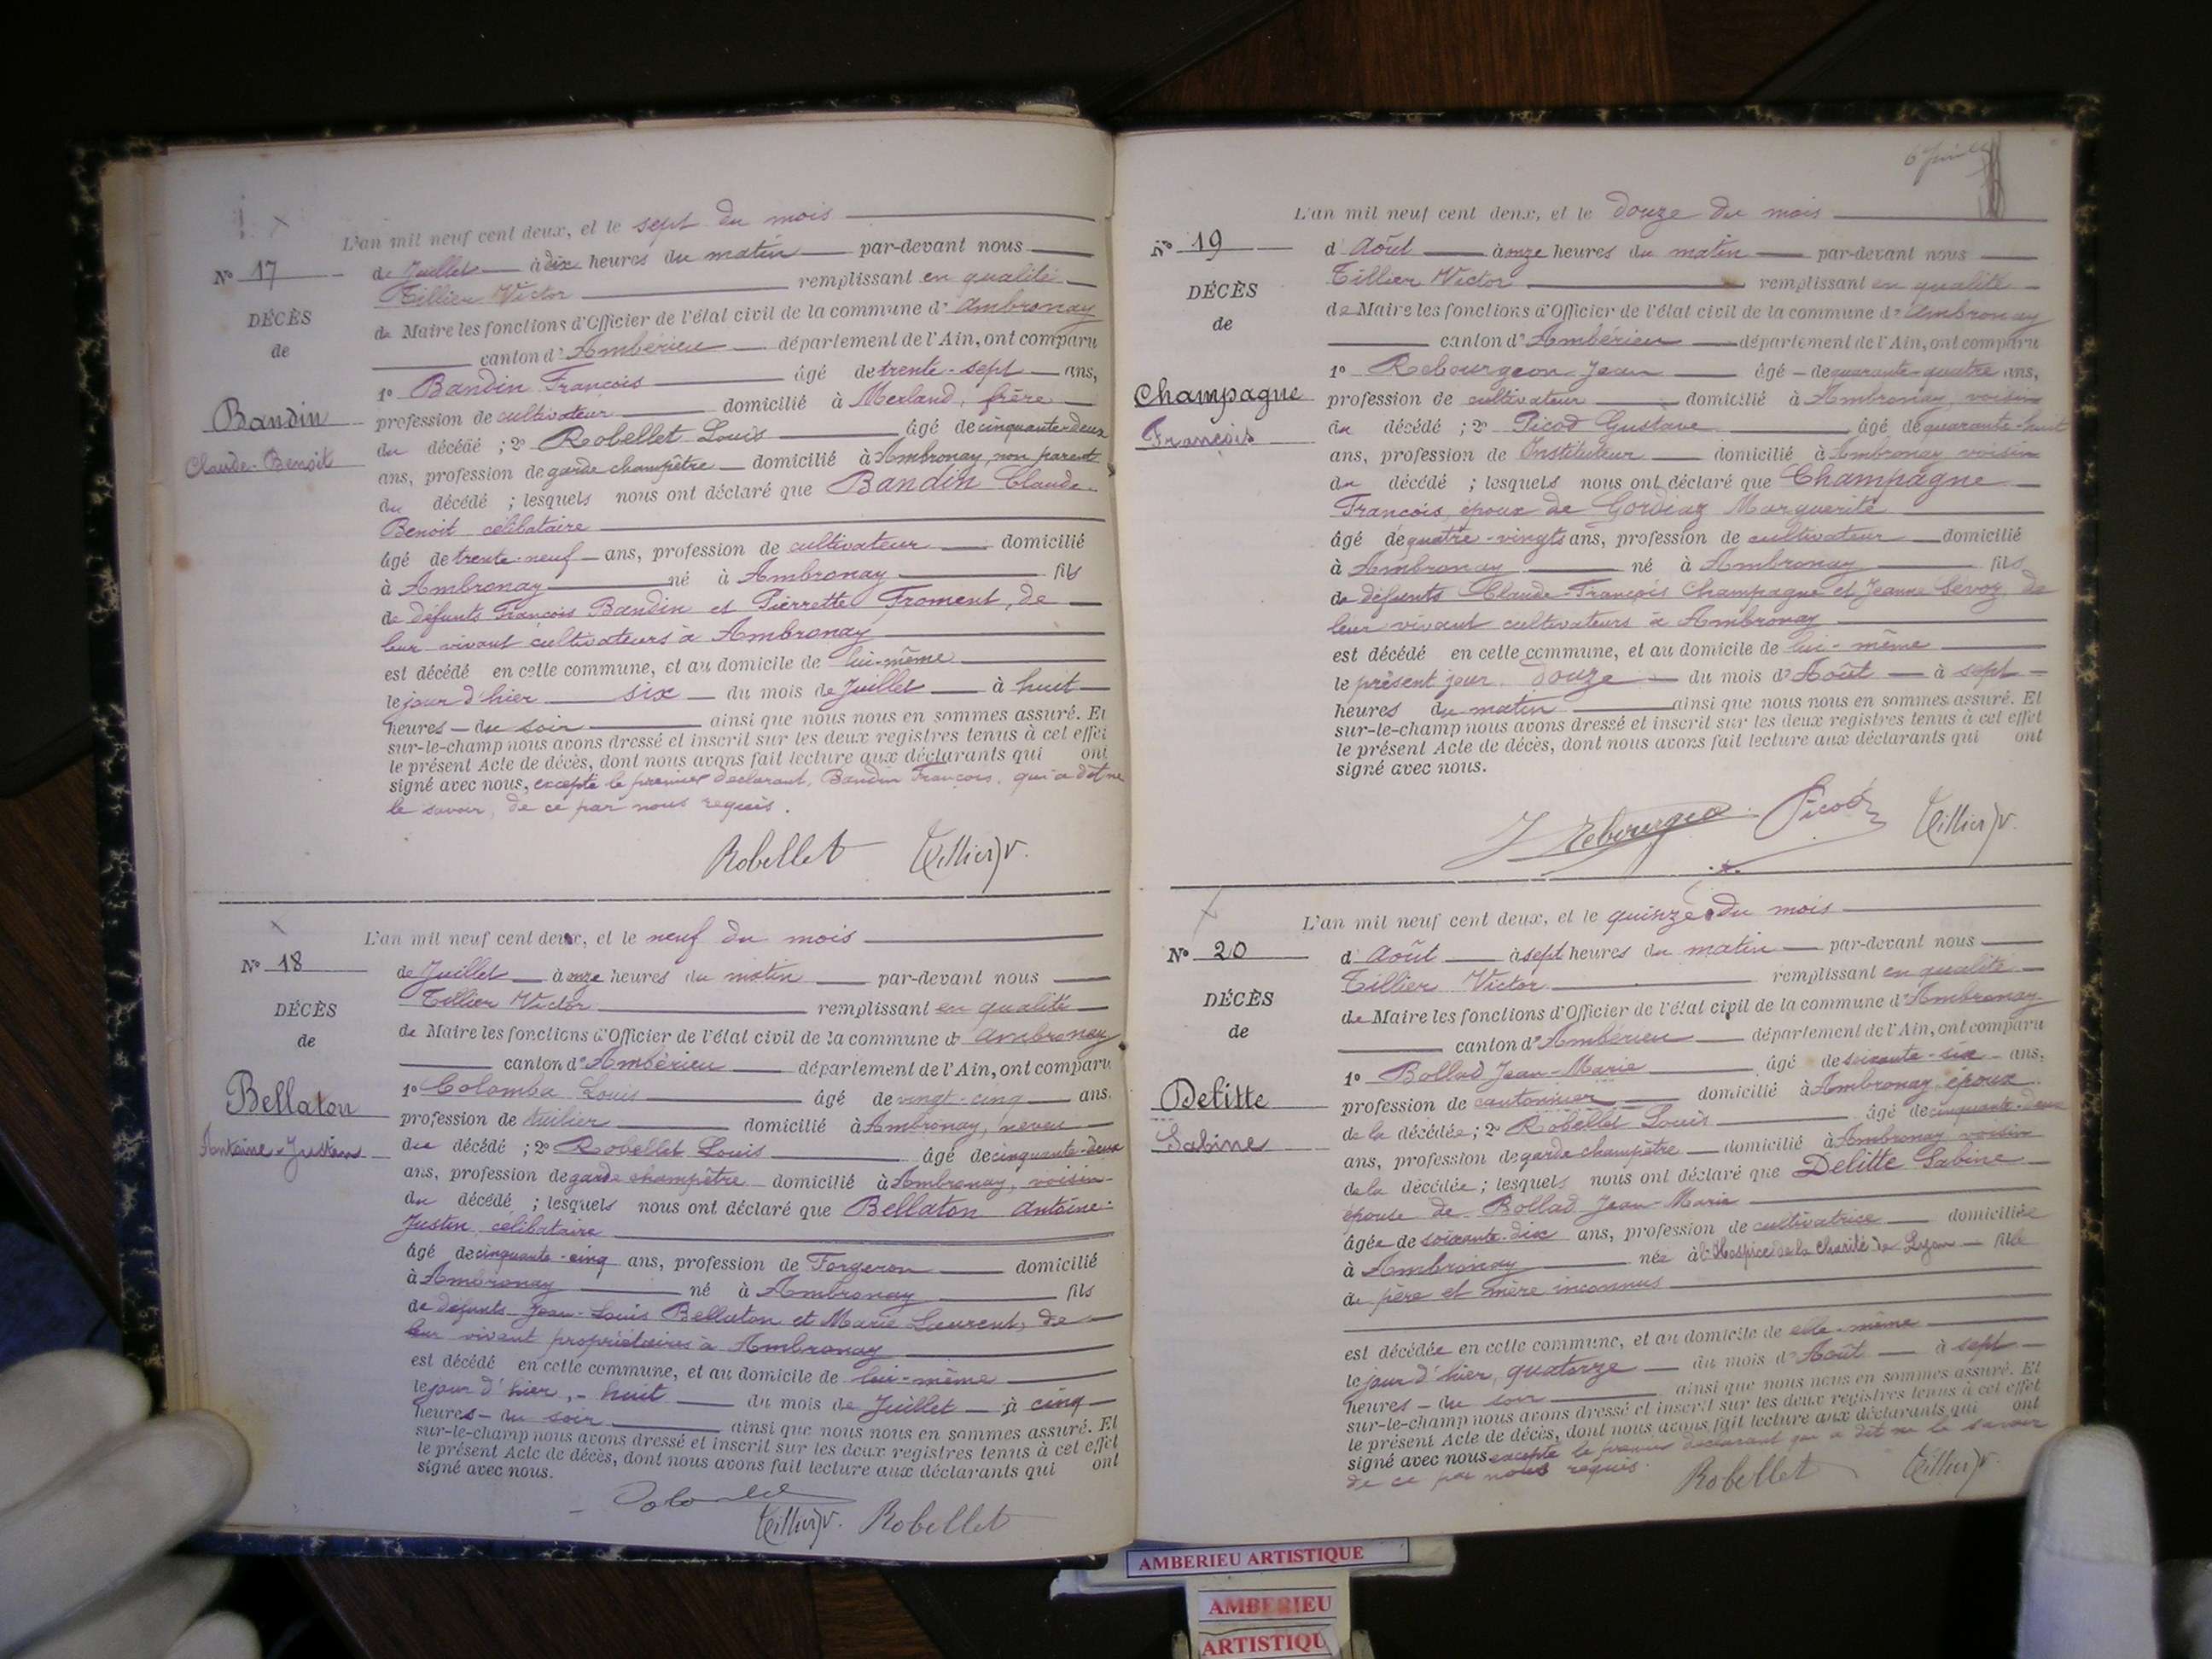 L'an mil neuf cent deux, et le sept du mois
N° 17
de Juillet à dix heures du matin par-devant nous
Tillier Victor remplissant en qualité
DÉCÈS
de Maire les fonctions d'Officier de l'état civil de la commune d' Ambronay
de
canton d' Ambérieu département de l'Ain, ont comparu
1° Bandin François âgé de trente-sept ans,
Bandin
profession de cultivateur domicilié à Merland, frère
Claude-Benoit
du décédé ; 2° Robellet Louis âgé de cinquante-deux
ans, profession de garde champêtre domicilié à Ambronay, non parent
du décédé ; lesquels nous ont déclaré que Bandin Claude-
Benoit célibataire
âgé de trente-neuf ans, profession de cultivateur domicilié
à Ambronay né à Ambronay fils
de défunts François Bandin et Pierrette Froment, de
leur vivant cultivateurs à Ambronay
est décédé en cette commune, et au domicile de lui-même
le jour d'hier six du mois de Juillet à huit
heures du soir ainsi que nous nous en sommes assuré. Et
sur-le-champ nous avons dressé et inscrit sur les deux registres tenus à cet effet
le présent Acte de décès, dont nous avons fait lecture aux déclarants qui ont
signé avec nous, excepté le premier déclarant, Bandin François, qui a dit ne
le savoir, de ce par nous requis.
Robellet Tillier V.
L'an mil neuf cent deux, et le neuf du mois
N° 18
de Juillet à onze heures du matin par-devant nous
Tillier Victor remplissant en qualité
DÉCÈS
de Maire les fonctions d'Officier de l'état civil de la commune d' Ambronay
de
canton d' Ambérieu département de l'Ain, ont comparu
1° Colomba Louis âgé de vingt-cinq ans,
Bellaton
profession de tuilier domicilié à Ambronay, neveu
Antoine-Justin
du décédé ; 2° Robellet Louis âgé de cinquante-deux
ans, profession de garde champêtre domicilié à Ambronay, voisin
du décédé ; lesquels nous ont déclaré que Bellaton Antoine-
Justin célibataire
âgé de cinquante-cinq ans, profession de Forgeron domicilié
à Ambronay né à Ambronay fils
de défunts Jean-Louis Bellaton et Marie Laurent, de
leur vivant propriétaires à Ambronay
est décédé en cette commune, et au domicile de lui-même
le jour d'hier, huit du mois de Juillet à cinq
heures du soir ainsi que nous nous en sommes assuré. Et
sur-le-champ nous avons dressé et inscrit sur les deux registres tenus à cet effet
le présent Acte de décès, dont nous avons fait lecture aux déclarants qui ont
signé avec nous.
Tillier V. Robellet
L'an mil neuf cent deux, et le douze du mois
N° 19
d' Août à onze heures du matin par-devant nous
Tillier Victor remplissant en qualité
DÉCÈS
de Maire les fonctions d'Officier de l'état civil de la commune d' Ambronay
de
canton d' Ambérieu département de l'Ain, ont comparu
1° Rebourgeon Jean âgé de quarante-quatre ans,
Champagne
profession de cultivateur domicilié à Ambronay, voisin
François
du décédé ; 2° Picod Gustave âgé de quarante-huit
ans, profession de Instituteur domicilié à Ambronay voisin
du décédé ; lesquels nous ont déclaré que Champagne
François, époux de Gordiaz Marguerite
âgé de quatre-vingts ans, profession de cultivateur domicilié
à Ambronay né à Ambronay fils
de défunts Claude-François Champagne et Jeanne Levroz, de
leur vivant cultivateurs à Ambronay
est décédé en cette commune, et au domicile de lui-même
le présent jour douze du mois d' Août à sept
heures du matin ainsi que nous nous en sommes assuré. Et
sur-le-champ nous avons dressé et inscrit sur les deux registres tenus à cet effet
le présent Acte de décès, dont nous avons fait lecture aux déclarants qui ont
signé avec nous.
J Rebourgeo Picod Tillier V.
L'an mil neuf cent deux, et le quinze du mois
N° 20
d' Août à sept heures du matin par-devant nous
Tillier Victor remplissant en qualité
DÉCÈS
de Maire les fonctions d'Officier de l'état civil de la commune d' Ambronay
de
canton d' Ambérieu département de l'Ain, ont comparu
1° Bollad Jean-Marie âgé de soixante-six ans,
Delitte
profession de cantonnier domicilié à Ambronay époux
Sabine
de la décédée ; 2° Robellet Louis âgé de cinquante-deux
ans, profession de garde champêtre domicilié à Ambronay voisin
de la décédée ; lesquels nous ont déclaré que Delitte Sabine
épouse de Bollad Jean-Marie
âgée de soixante-dix ans, profession de cultivatrice domiciliée
à Ambronay née à l'Hospice de la Charité de Lyon fille
de père et mère inconnus
est décédée en cette commune, et au domicile de elle-même
le jour d'hier, quatorze du mois d' Août à sept
heures du soir ainsi que nous nous en sommes assuré. Et
sur-le-champ nous avons dressé et inscrit sur les deux registres tenus à cet effet
le présent Acte de décès, dont nous avons fait lecture aux déclarants qui ont
signé avec nous excepté le premier déclarant qui a dit ne le savoir
de ce par nous requis.
Robellet Tillier V.
AMBERIEU ARTISTIQUE
AMBERIEU
ARTISTIQU